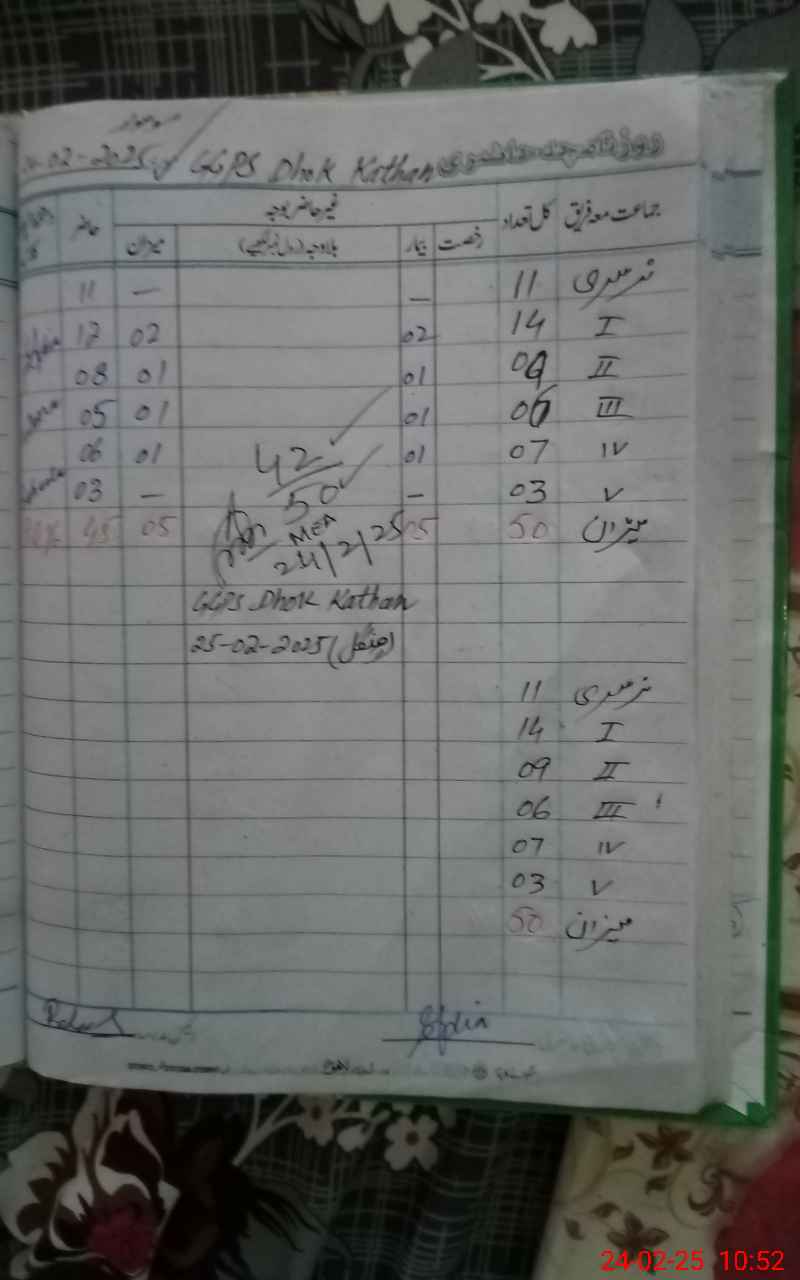 سوموار
-02-2025 GGPS Dhok Kathan روزنامچہ حاضری
جماعت معہ فریق کل تعداد غیر حاضر بوجہ حاضر
رخصت بیمار بلا وجہ (رول نمبر لکھیے) میزان
نرسری 11 — — 11
I 14 02 02 12
II 09 01 01 08
III 06 01 01 05
IV 07 01 01 06
V 03 — — 03
میزان 50 05 05 45
42
50
MEA
24/2/25
GGPS Dhok Kathan
25-02-2025 (منگل)
نرسری 11
I 14
II 09
III 06
IV 07
V 03
میزان 50
24-02-25 10:52